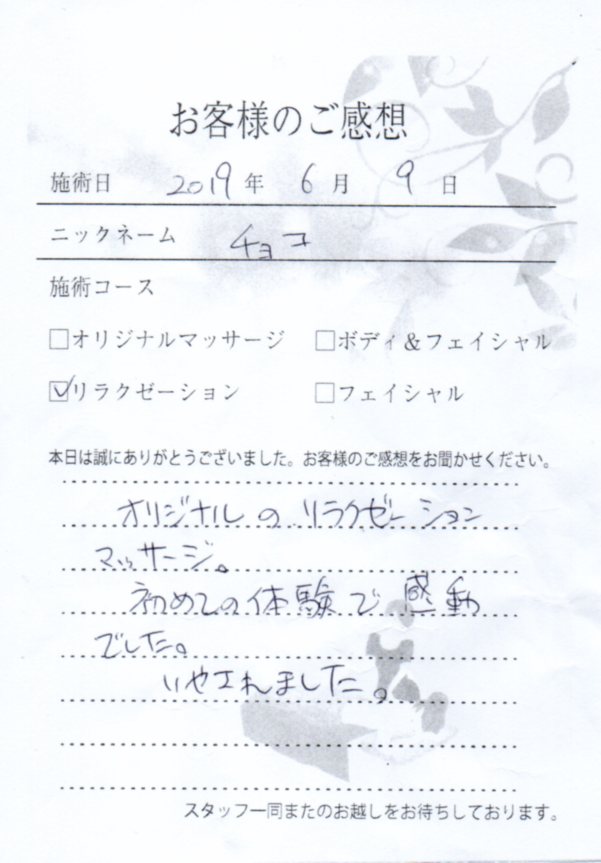 お客様のご感想
施術日 2019年 6月 9日
ニックネーム チョコ
施術コース
□オリジナルマッサージ □ボディ&フェイシャル
☑リラクゼーション □フェイシャル
本日は誠にありがとうございました。お客様のご感想をお聞かせください。
オリジナルのリラクゼーション
マッサージ。
初めての体験で感動
でした。
いやされました。
スタッフ一同またのお越しをお待ちしております。